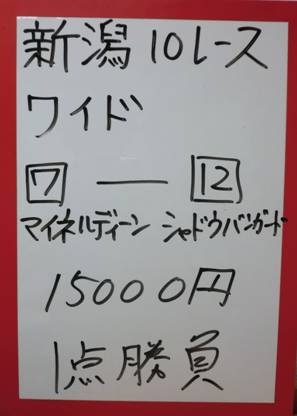 新潟10レース
ワイド
7 — 12
マイネルディーン シャドウバンガード
15000円
1点勝負